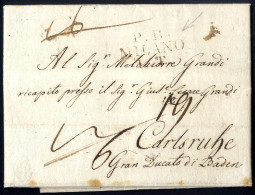 P.P.
MILANO
Al Sig.r Melchiorre Grandi
ricapito presso il Sig.r Gius.e Cesare Grandi
19
Carlsruhe
Gran Ducato di Baden